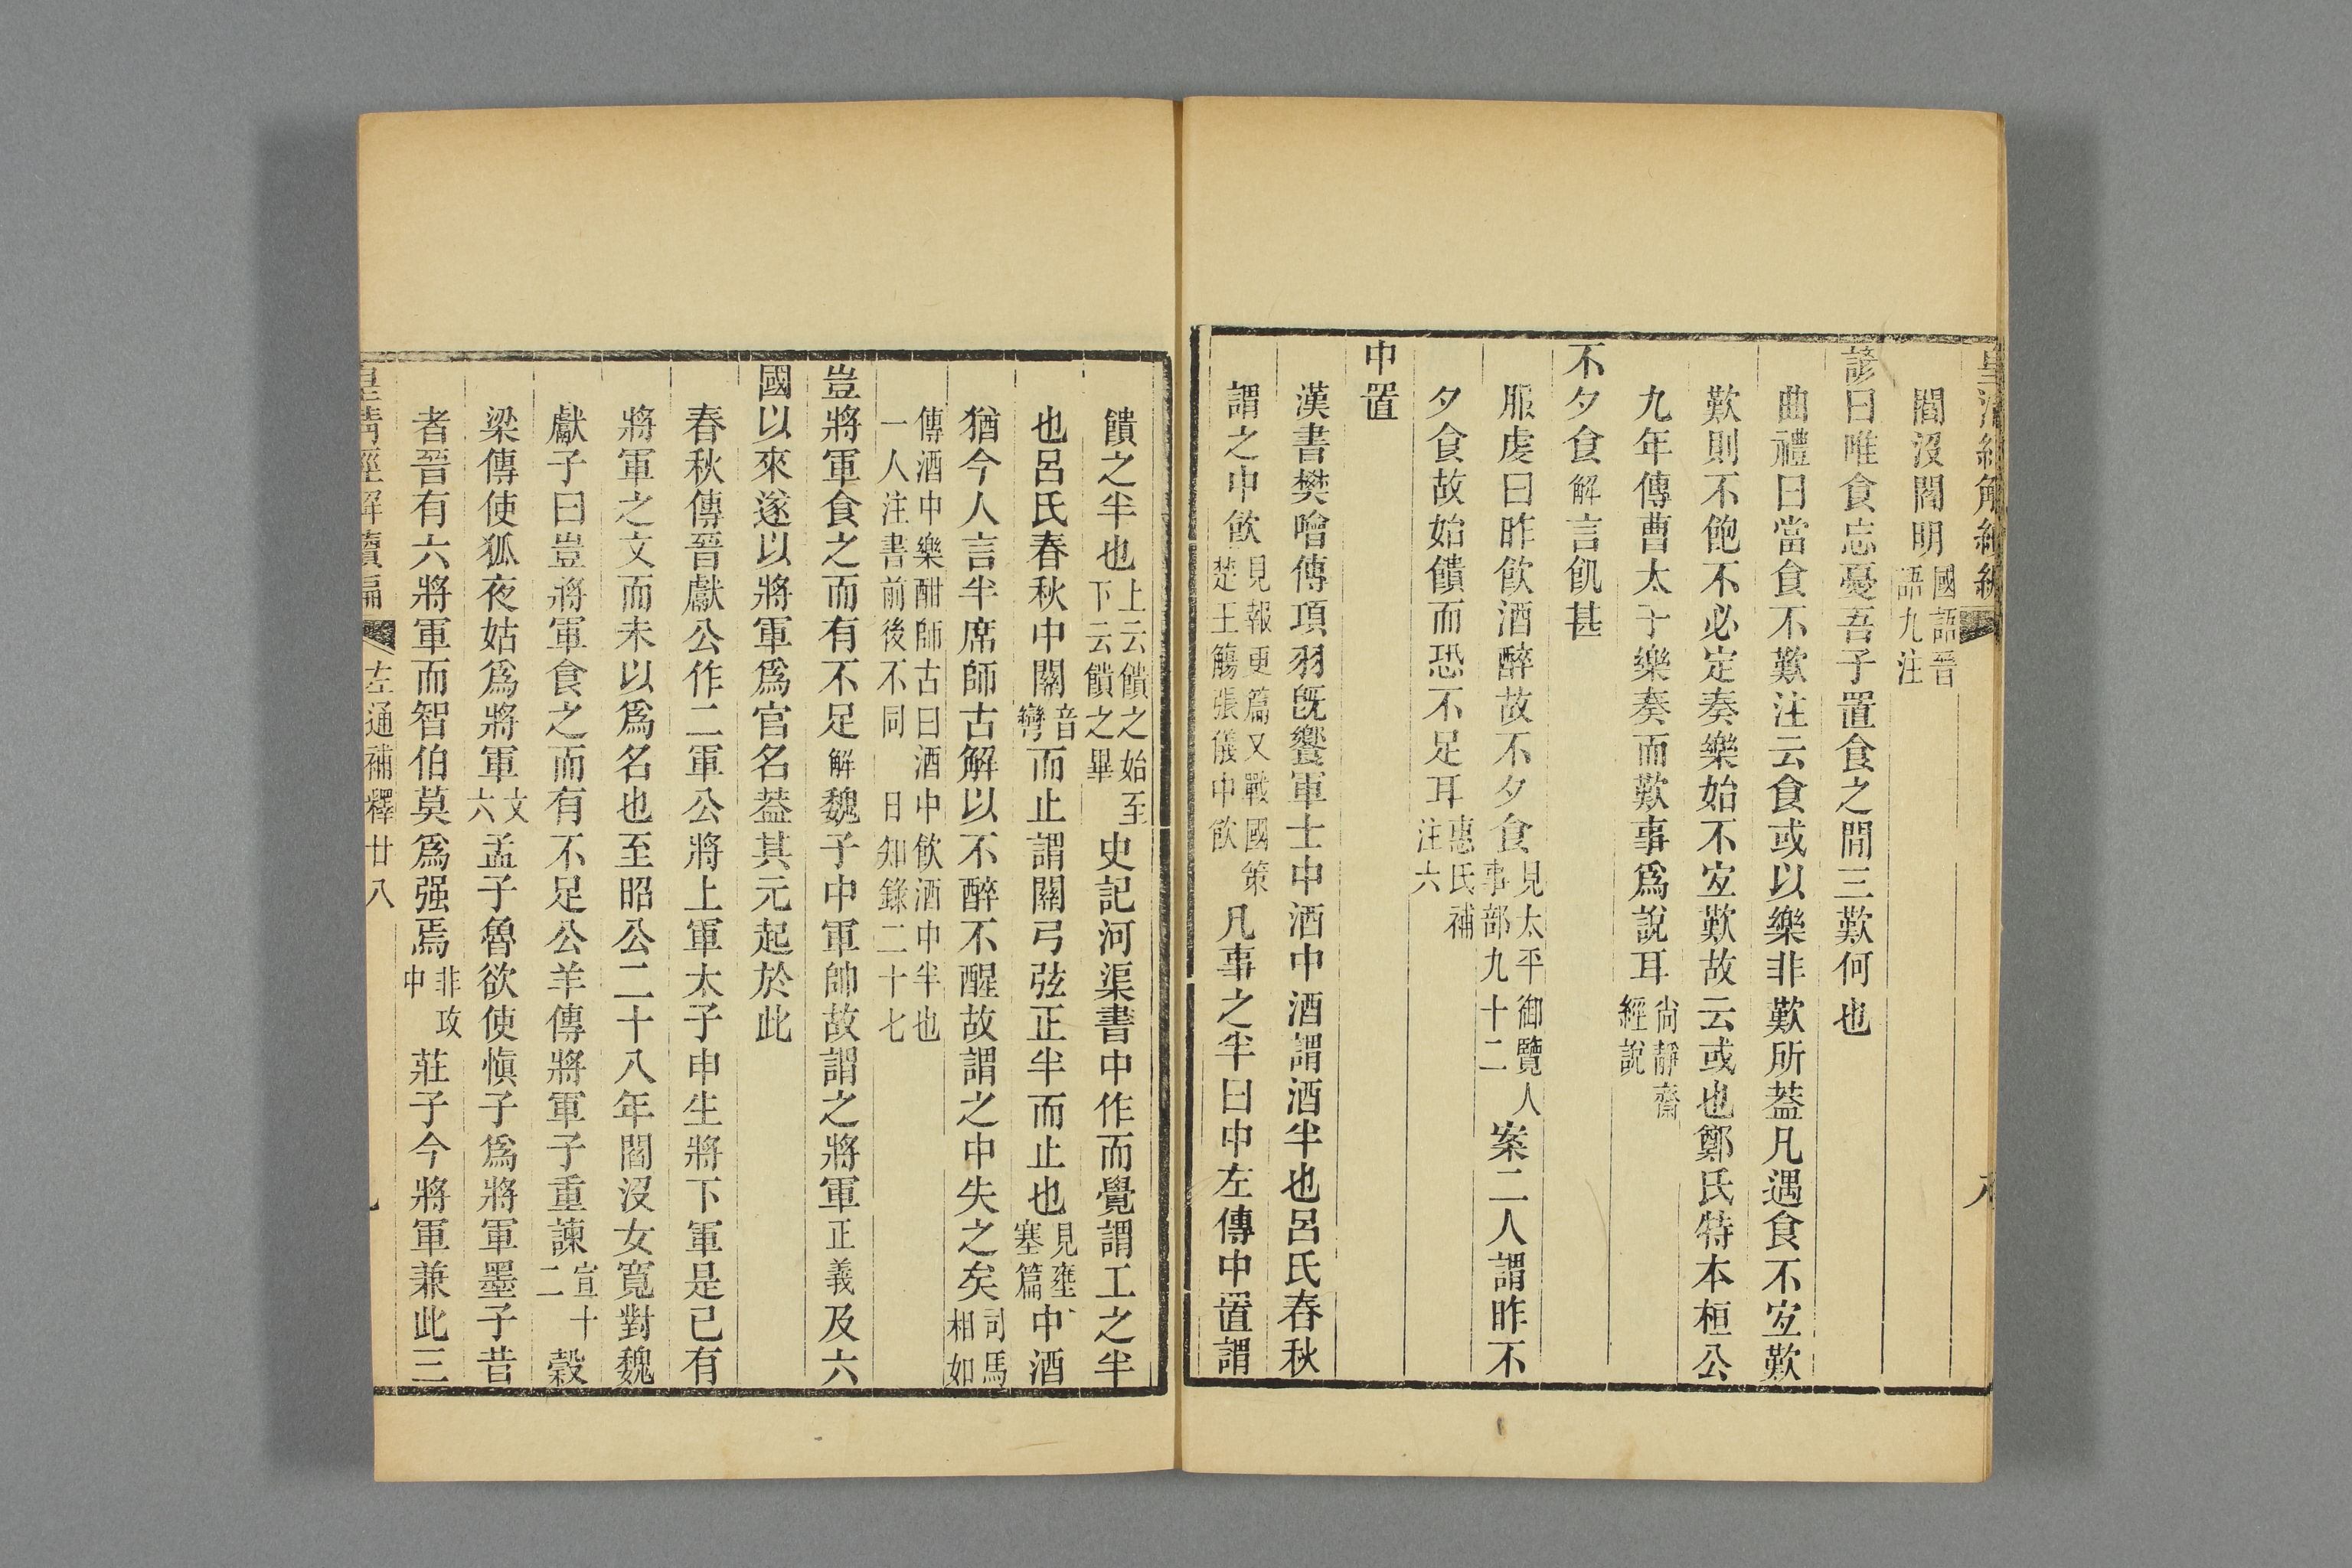 閻沒閻明國語晉語九注
諺曰唯食忘憂吾子置食之間三歎何也
曲禮曰當食不歎注云食或以樂非歎所葢凡遇食不宐歎
歎則不飽不必定奏樂始不宐歎故云或也鄭氏特本桓公
九年傳曹太子樂奏而歎事爲說耳尙靜齋經說
不夕食解言飢甚
服虔曰昨飮酒醉故不夕食見太平御覽人事部九十二案二人謂昨不
夕食故始饋而恐不足耳惠氏補注六
中置
漢書樊噲傳項羽旣饗軍士中酒中酒謂酒半也呂氏春秋
謂之中飮見報更篇又戰國策楚王觴張儀中飮凡事之半曰中左傳中置謂
饋之半也上云饋之始至下云饋之畢史記河渠書中作而覺謂工之半
也呂氏春秋中關音彎而止謂關弓弦正半而止也見壅塞篇中酒
猶今人言半席師古解以不醉不醒故謂之中失之矣司馬相如
傳酒中樂酣師古曰酒中飮酒中半也一人注書前後不同日知錄二十七
豈將軍食之而有不足解魏子中軍帥故謂之將軍正義及六
國以來遂以將軍爲官名葢其元起於此
春秋傳晉獻公作二軍公將上軍太子申生將下軍是已有
將軍之文而未以爲名也至昭公二十八年閻沒女寬對魏
獻子曰豈將軍食之而有不足公羊傳將軍子重諫宣十二穀
梁傳使狐夜姑爲將軍文六孟子魯欲使愼子爲將軍墨子昔
者晉有六將軍而智伯莫爲强焉非攻中莊子今將軍兼此三
皇淸經解續編
左通補釋廿八